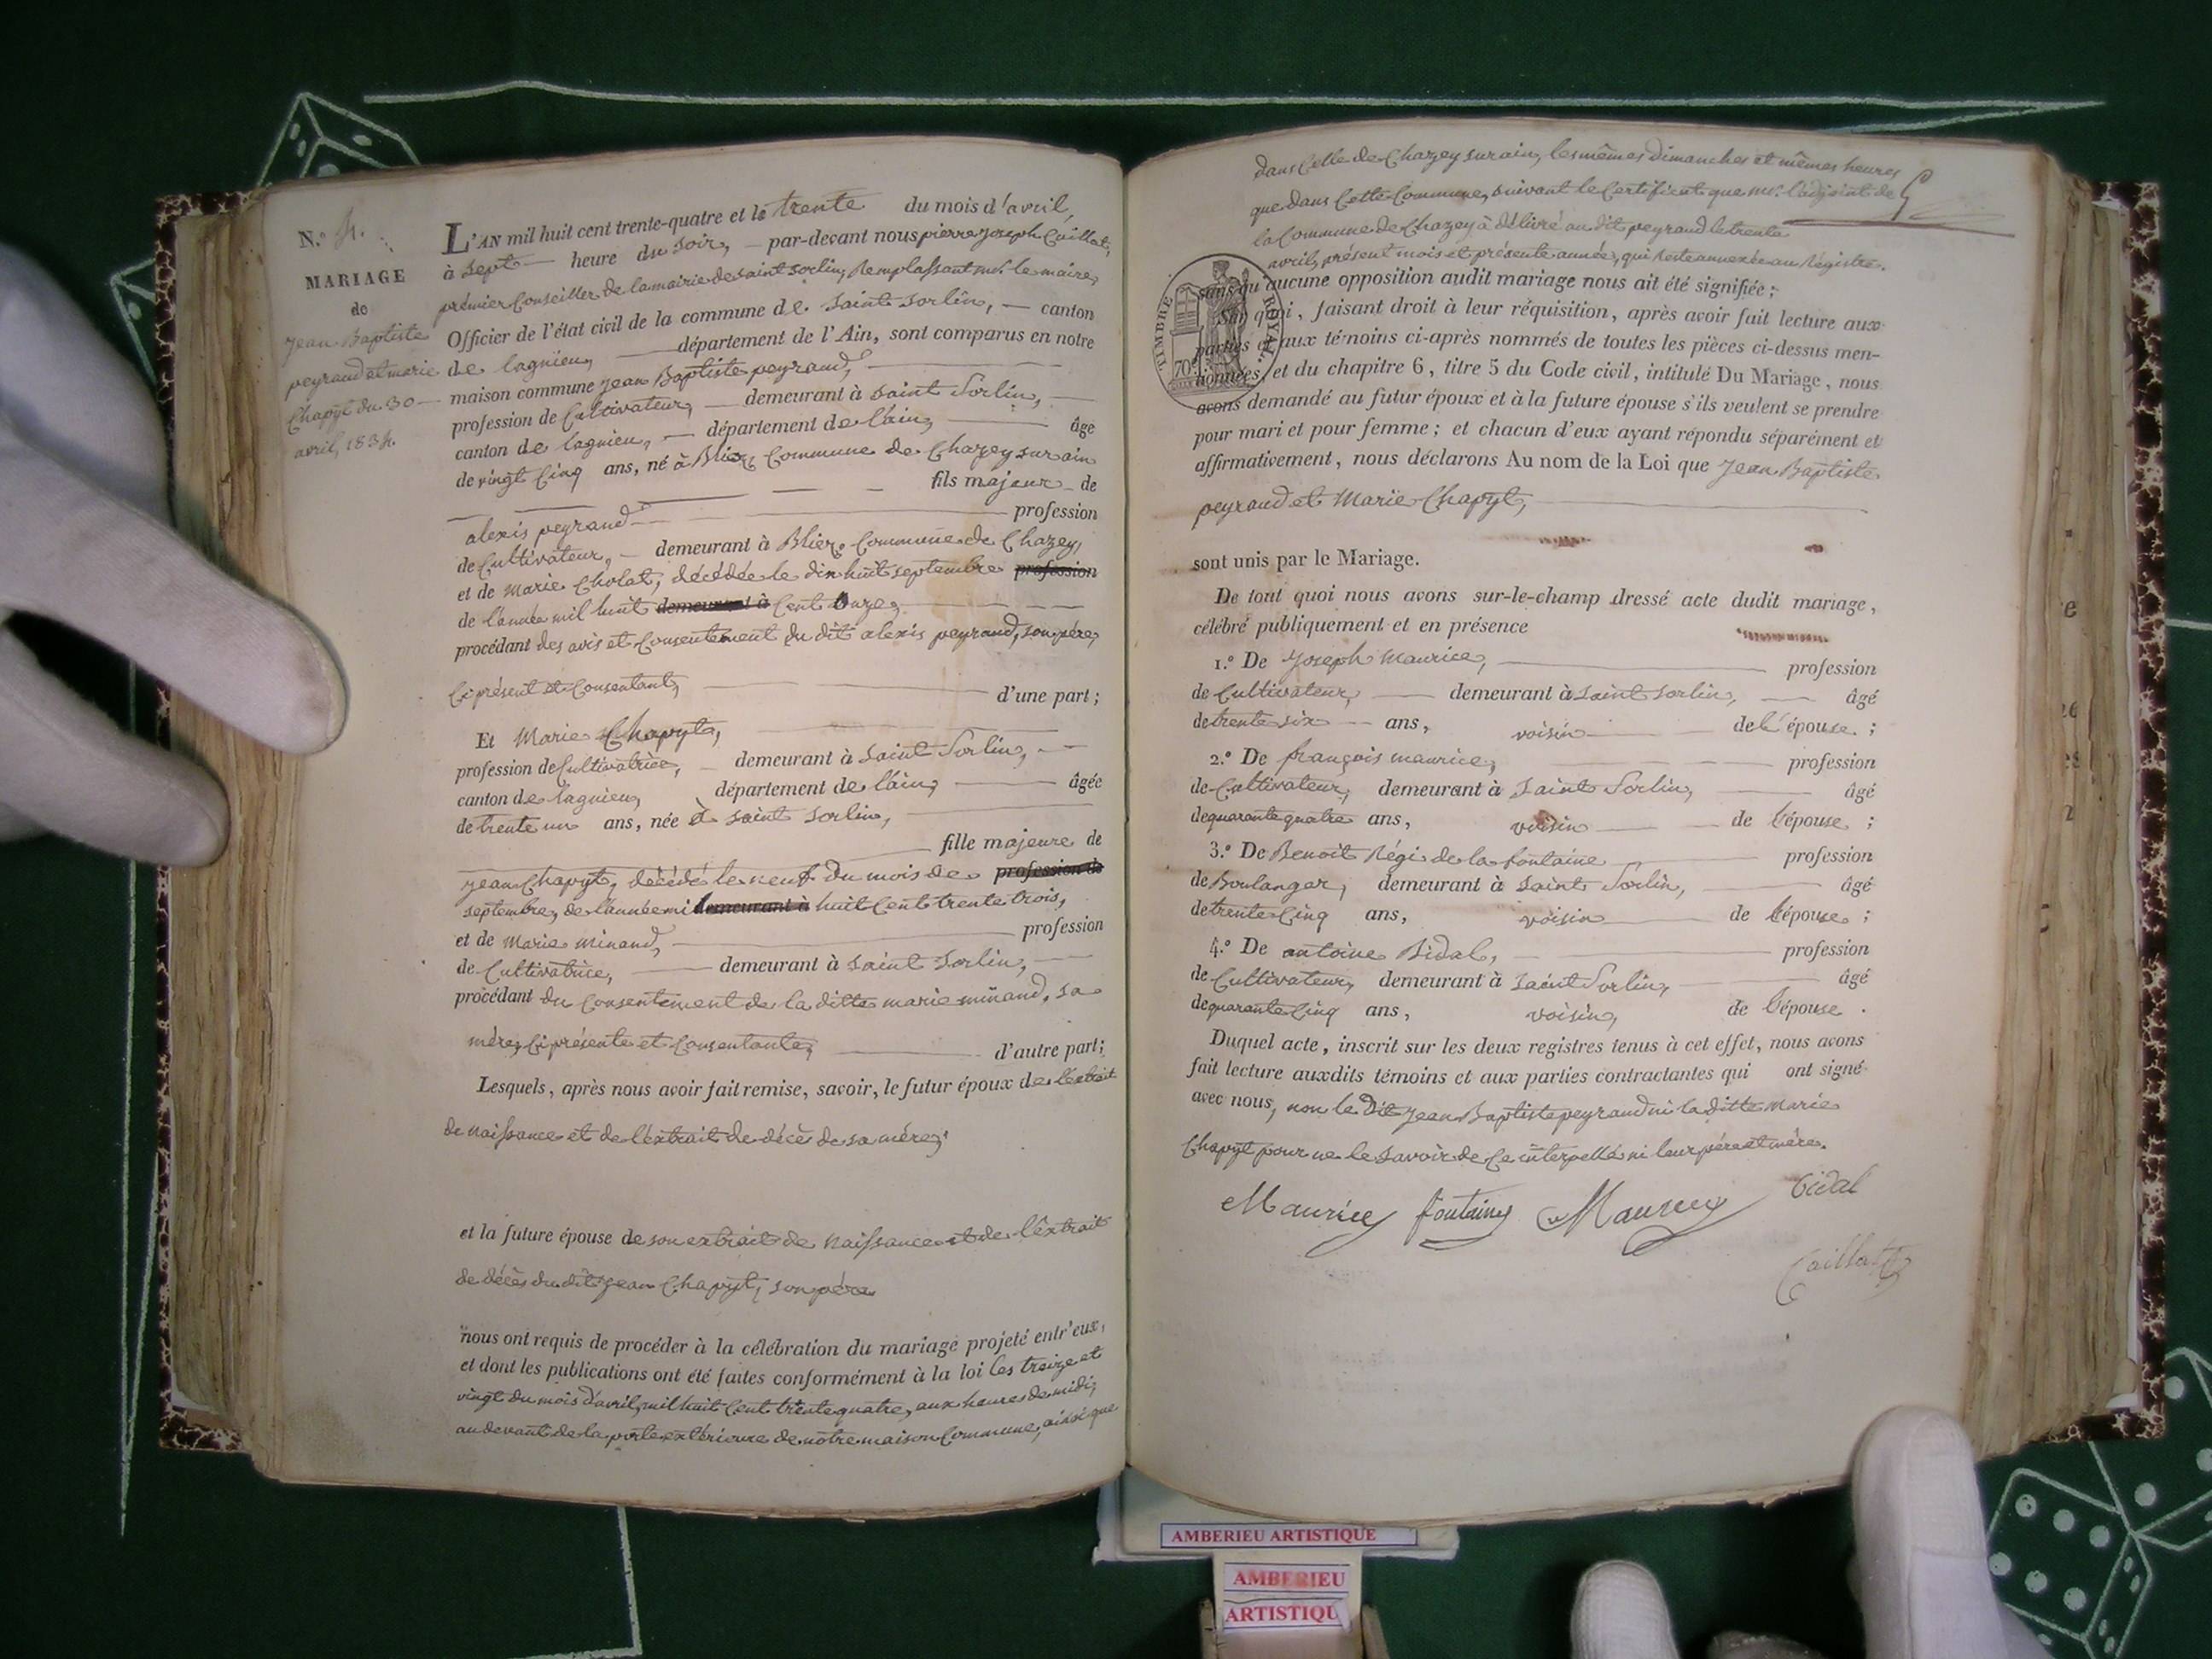 N.º 4.
MARIAGE
de
Jean Baptiste
peyrand et marie
Chapyt du 30
avril, 1834.
L'AN mil huit cent trente-quatre et le trente du mois d'avril,
à sept heure du soir, par-devant nous pierre Joseph Caillat,
prémier Conseiller de la mairie de saint sorlin, Remplassant mr. le maire,
Officier de l'état civil de la commune de saint sorlin, canton
de lagnieu, département de l'Ain, sont comparus en notre
maison commune jean Baptiste peyrand,
profession de Cultivateur, demeurant à saint Sorlin,
canton de lagnieu, département de l'ain, âgé
de vingt Cinq ans, né à Blier, Commune de Chazey sur ain
fils majeur de
alexis peyrand profession
de Cultivateur, demeurant à Blier, Commune de Chazey,
et de Marie Cholat, décédée le dix huit septembre profession
de l'année mil huit demeurant à Cent Onze,
procédant des avis et Consentement du dit alexis peyrand, son père,
Ci présent et Consentant, d'une part ;
Et Marie Chapyt,
profession de Cultivatrice, demeurant à saint Sorlin,
canton de lagnieu, département de l'ain, âgée
de trente un ans, née à saint sorlin,
fille majeure de
jean Chapyt, décédé le neuf du mois de profession de
septembre, de l'année mil demeurant à huit Cent trente trois,
et de Marie minand, profession
de Cultivatrice, demeurant à saint sorlin,
procédant du Consentement de la ditte marie minand, sa
mère, Ci présente et Consentante, d'autre part ;
Lesquels, après nous avoir fait remise, savoir, le futur époux de l'extrait
de naissance et de l'extrait de décès de sa mère,
et la future épouse de son extrait de naissance et de l'extrait
de décès du dit jean Chapyt, son père
nous ont requis de procéder à la célébration du mariage projeté entr'eux,
et dont les publications ont été faites conformément à la loi les treize et
vingt du mois d'avril, mil huit Cent trente quatre, aux heures de midi,
au devant de la porte extérieure de notre maison Commune, ainsi que
dans Celle de Chazey sur ain, les mêmes dimanches et mêmes heures
que dans Cette Commune, suivant le Certificat que mr. l'adjoint de
la Commune de Chazey à délivré au dit peyrand le trente
avril, présent mois et présente année, qui reste annexée au Régistre.
sans qu'aucune opposition audit mariage nous ait été signifiée ;
TIMBRE ROYAL.
70
Sur quoi, faisant droit à leur réquisition, après avoir fait lecture aux
parties et aux témoins ci-après nommés de toutes les pièces ci-dessus men-
tionnées, et du chapitre 6, titre 5 du Code civil, intitulé Du Mariage, nous
avons demandé au futur époux et à la future épouse s'ils veulent se prendre
pour mari et pour femme ; et chacun d'eux ayant répondu séparément et
affirmativement, nous déclarons Au nom de la Loi que Jean Baptiste
peyrand et Marie Chapyt,
sont unis par le Mariage.
De tout quoi nous avons sur-le-champ dressé acte dudit mariage,
célébré publiquement et en présence
1.º De Joseph Maurice, profession
de Cultivateur, demeurant à saint sorlin, âgé
de trente six ans, voisin de l'épouse ;
2.º De françois maurice, profession
de Cultivateur, demeurant à saint Sorlin, âgé
de quarante quatre ans, voisin de l'épouse ;
3.º De Benoit Régi de la fontaine profession
de Boulanger, demeurant à saint Sorlin, âgé
de trente Cinq ans, voisin de l'épouse ;
4.º De antoine Bidal, profession
de Cultivateur, demeurant à saint Sorlin, âgé
de quarante Cinq ans, voisin, de l'épouse .
Duquel acte, inscrit sur les deux registres tenus à cet effet, nous avons
fait lecture auxdits témoins et aux parties contractantes qui ont signé
avec nous, non le Dit Jean Baptiste peyrand ni la ditte Marie
Chapyt pour ne le savoir de Ce interpellé ni leur père et mère.
Maurice fontaine Maurice Bidal
Caillat
AMBERIEU ARTISTIQUE
AMBERIEU
ARTISTIQU